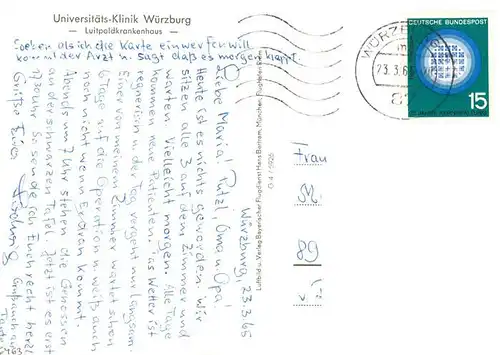 Universitäts-Klinik Würzburg
— Luitpoldkrankenhaus —
Soeben als ich die Karte einwerfen will
kommt der Arzt u. sagt daß es morgen klappt.
Würzburg, 23.3.65
Liebe Maria! Putzl, Oma u. Opa!
Heute ist es nichts geworden. Wir
sitzen alle 3 auf dem Zimmer und
warten. Vielleicht morgen. Alle Tage
kommen neue Patienten. Das Wetter ist
regnerisch u. der Tag vergeht nur langsam.
Einer von meinem Zimmer wartet schon
6 Tage auf die Operation u. weiß auch
noch nicht wann er dran kommt.
Abends um 7 Uhr stehen die Genossen
an der schwarzen Tafel. Jetzt ist es erst
7.30 Uhr. So sende ich Euch recht herzl.
Grüße Euer
Gruß auch an
Tante
Luftbild u. Verlag Bayerischer Flugdienst Hans Bertram, München, Flughafen Riem
G 4 / 5926
DEUTSCHE BUNDESPOST
15
WÜRZBURG
23.3.65
Frau
M.
89
6463